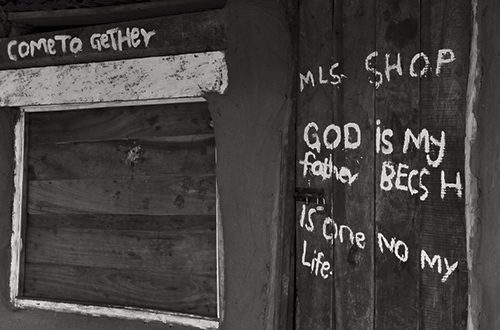 COMETO GETHER
MLS SHOP
GOD is My
father BECS H
IS One NO My
Life.